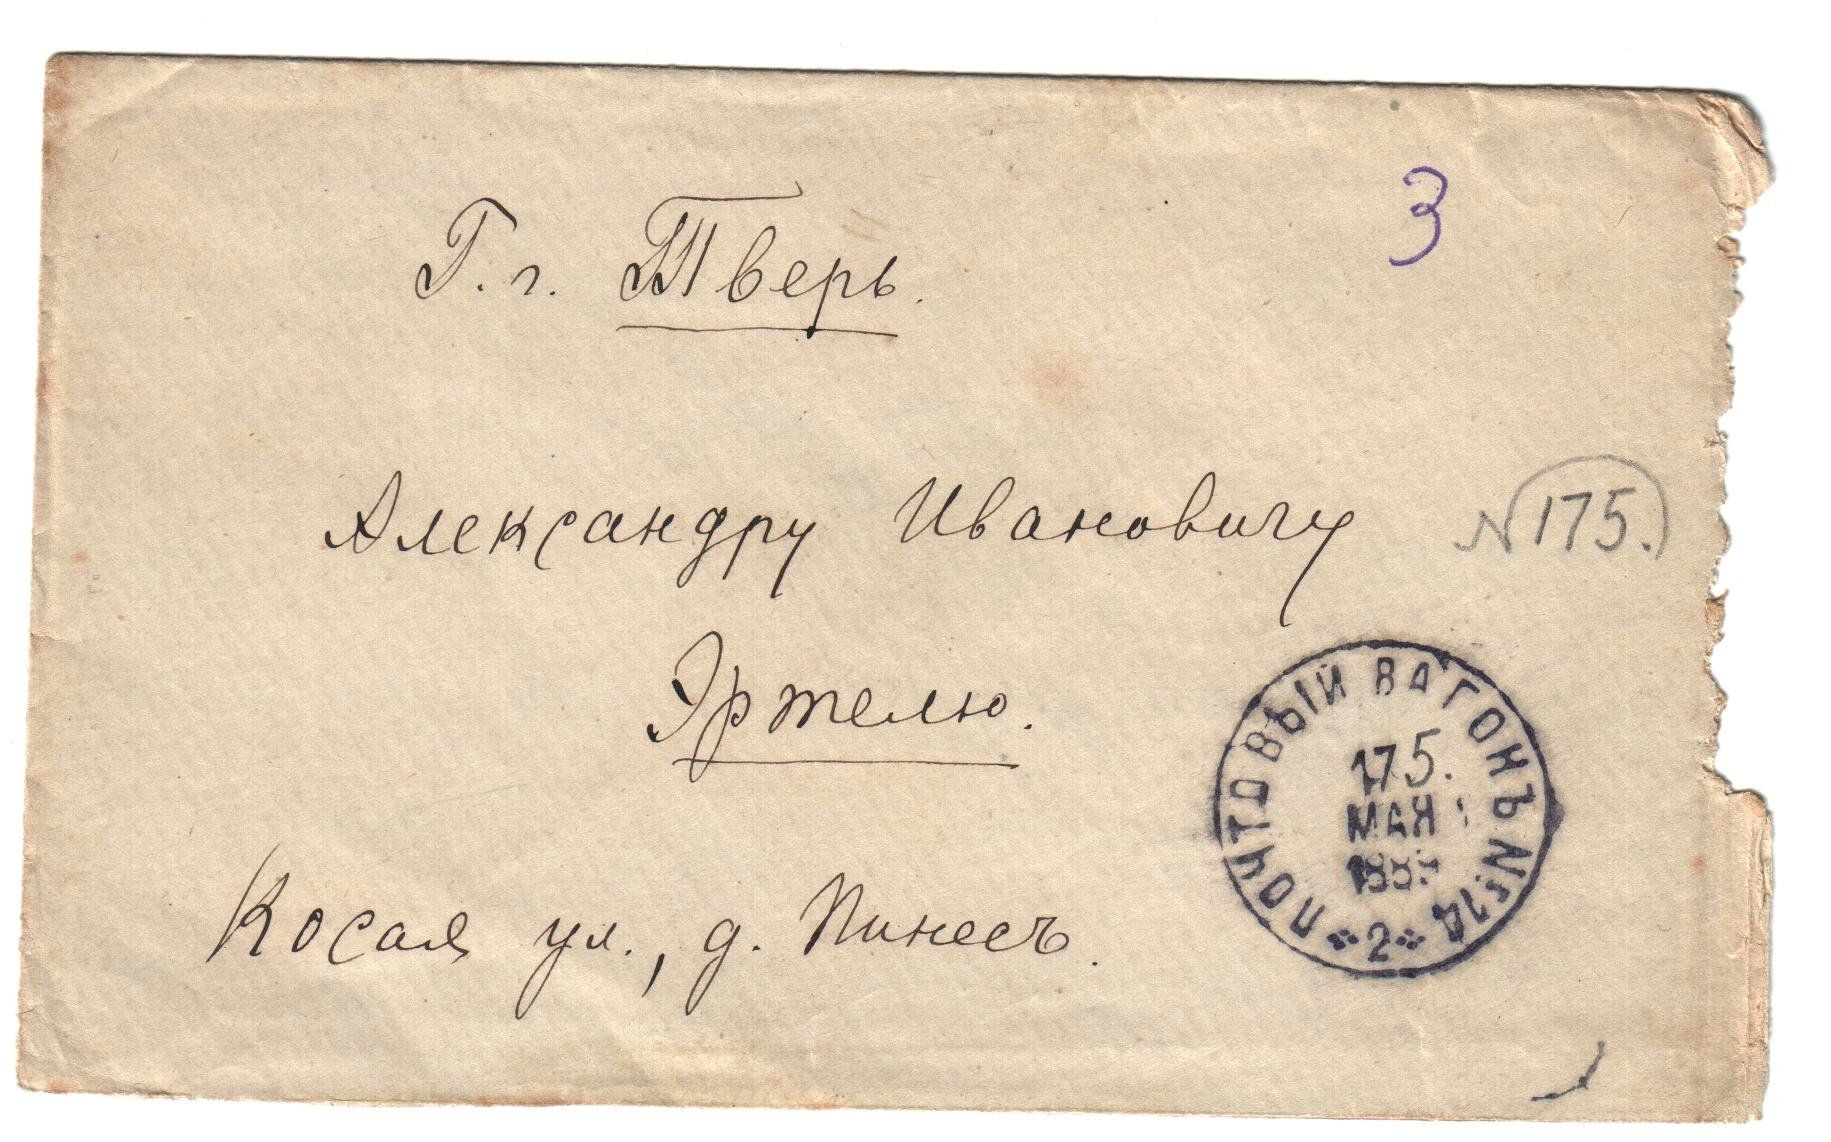 3
Г. г. Тверь.
Александру Ивановичу
N 175.
Эртелю.
ПОЧТОВЫЙ ВАГОНЪ №
175.
МАЯ
2
Косая ул., д. Пинесъ.